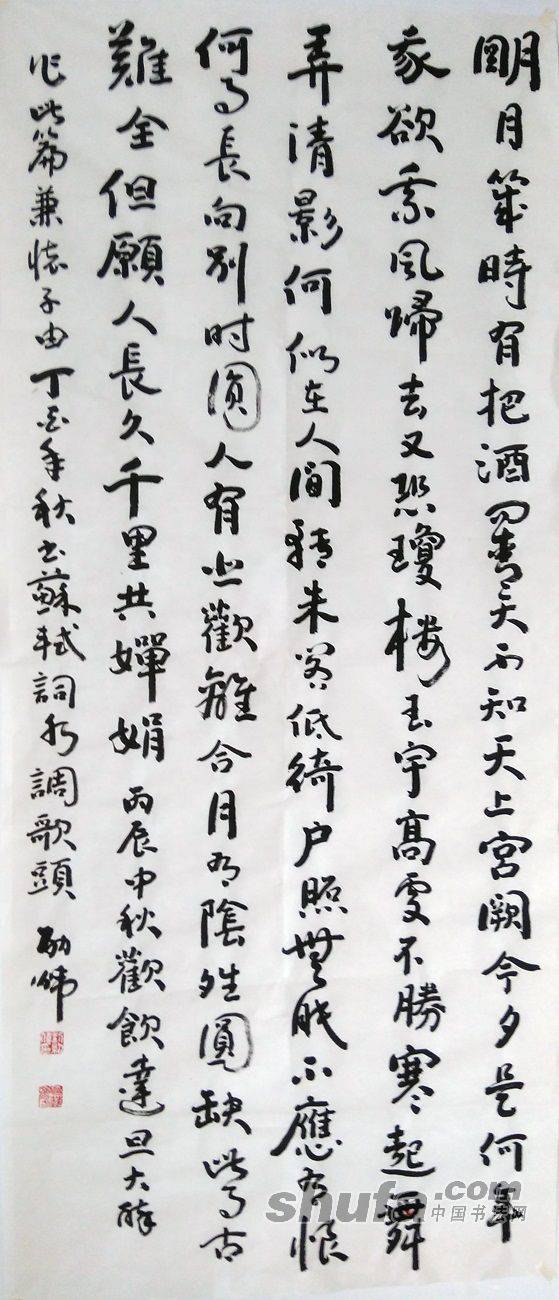 明月幾時有把酒問青天不知天上宮闕今夕是何年
我欲乘風歸去又恐瓊樓玉宇高處不勝寒起舞
弄清影何似在人間轉朱閣低綺户照無眠不應有恨
何事長向別时圓人有悲歡離合月有陰晴圓缺此事古
難全但願人長久千里共嬋娟丙辰中秋歡飲達旦大醉
作此篇兼懷子由丁酉年秋书蘇軾詞水調歌頭
shufa.com
中国书法网